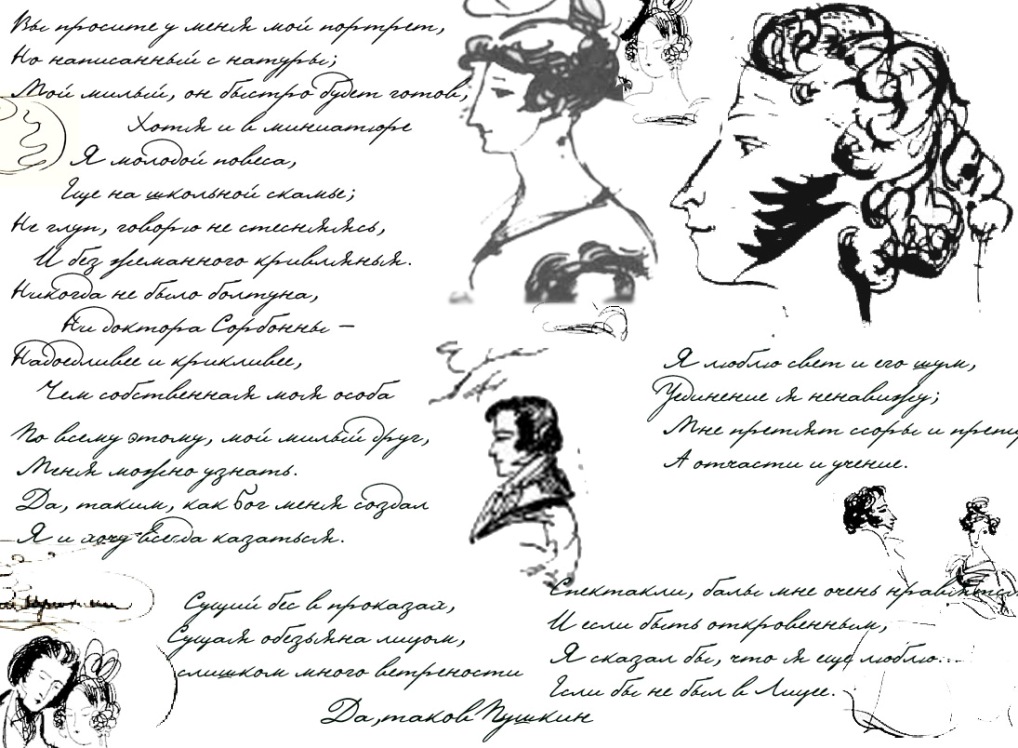 Вы просите у меня мой портрет,
Но написанный с натуры;
Мой милый, он быстро будет готов,
Хотя и в миниатюре
Я молодой повеса,
Еще на школьной скамье;
Не глуп, говорю не стесняясь,
И без жеманного кривлянья.
Никогда не было болтуна,
Ни доктора Сорбонны –
Надоедливее и крикливее,
Чем собственная моя особа
По всему этому, мой милый друг,
Меня можно узнать.
Да, таким, как бог меня создал
Я и хочу всегда казаться.
Сущий бес в проказах,
Сущая обезьяна лицом,
слишком много ветрености
Да,таков Пушкин
Я люблю свет и его шум,
Уединение я ненавижу;
Мне претят ссоры и
А отчасти и учение.
Спектакли, балы мне очень нравятся
И если быть откровенным,
Я сказал бы, что я еще люблю...
Если бы не был в Лицее.